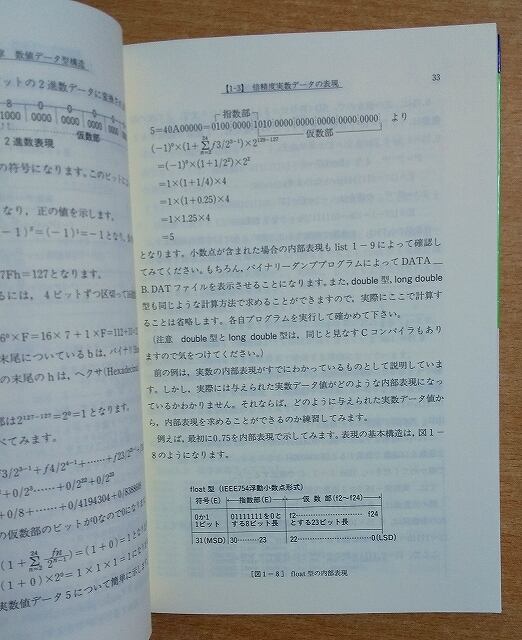 章 数値データ型構造
ットの2進数データに変換され
8 0 0 0
1000 0000 0000 0000
仮数部
2進数表現
の符号になります。このビットに
なり，正の値を示します。
7Fh=127となります。
るには，4ビットずつ区切って16進
6⁰×F=16×7+1×F=112+
の末尾についているbは，バイナリ
の末尾のhは，ヘクサ(Hexadecim
部は2¹²⁷⁻¹²⁷=2⁰=1となります。
べてみます。
の仮数部のビットが0なので0になり
(1+0)×2⁰=1×1×1=1に
実数値データ5について簡単に示しま
【1-3】 倍精度実数データの表現
33
指数部
5=40A00000=0100 0000 1010 0000 0000 0000 0000 0000 より
仮数部
(-1)⁰×(1+Σf3/2³⁻¹)×2¹²⁹⁻¹²⁷
=(-1)⁰×(1+1/2²)×2²
=1×(1+1/4)×4
=1×(1+0.25)×4
=1×1.25×4
=5
となります。小数点が含まれた場合の内部表現も list 1-9 によって確認し
てみてください。もちろん，バイナリーダンププログラムによって DATA＿
B.DAT ファイルを表示させることになります。また，double 型，long double
型も同じような計算方法で求めることができますので，実際にここで計算す
ることは省略します。各自プログラムを実行して確かめて下さい。
(注意 double 型と long double 型は，同じと見なす C コンパイラもあり
ますので気をつけてください。)
前の例は，実数の内部表現がすでにわかっているものとして説明していま
す。しかし，実際には与えられた実数データ値がどのような内部表現になっ
ているかわかりません。それならば，どのように与えられた実数データ値か
ら，内部表現を求めることができるのか練習してみます。
例えば，最初に0.75を内部表現で示してみます。表現の基本構造は，図1-
8のようになります。
float 型（IEEE754浮動小数点形式）
符号(E) 指数部(E) 仮数部(f2～f24)
0か1 01111111を0と f2 f24
1ビット する8ビット長 とする23ビット長
31(MSD) 30……23 22……0(LSD)
［図1-8］ float 型の内部表現